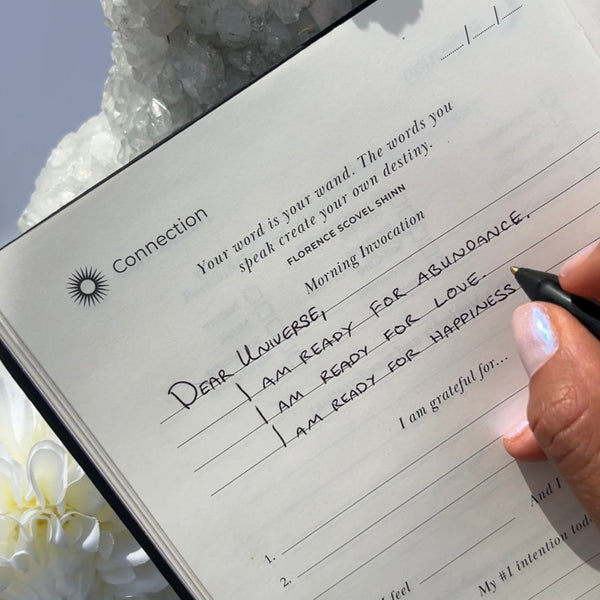 / /
Connection
Your word is your wand. The words you
speak create your own destiny.
FLORENCE SCOVEL SHINN
Morning Invocation
DEAR UNIVERSE,
I AM READY FOR ABUNDANCE.
I AM READY FOR LOVE.
I AM READY FOR HAPPINESS
I am grateful for...
1.
2.
And I
feel
My #1 intention tod